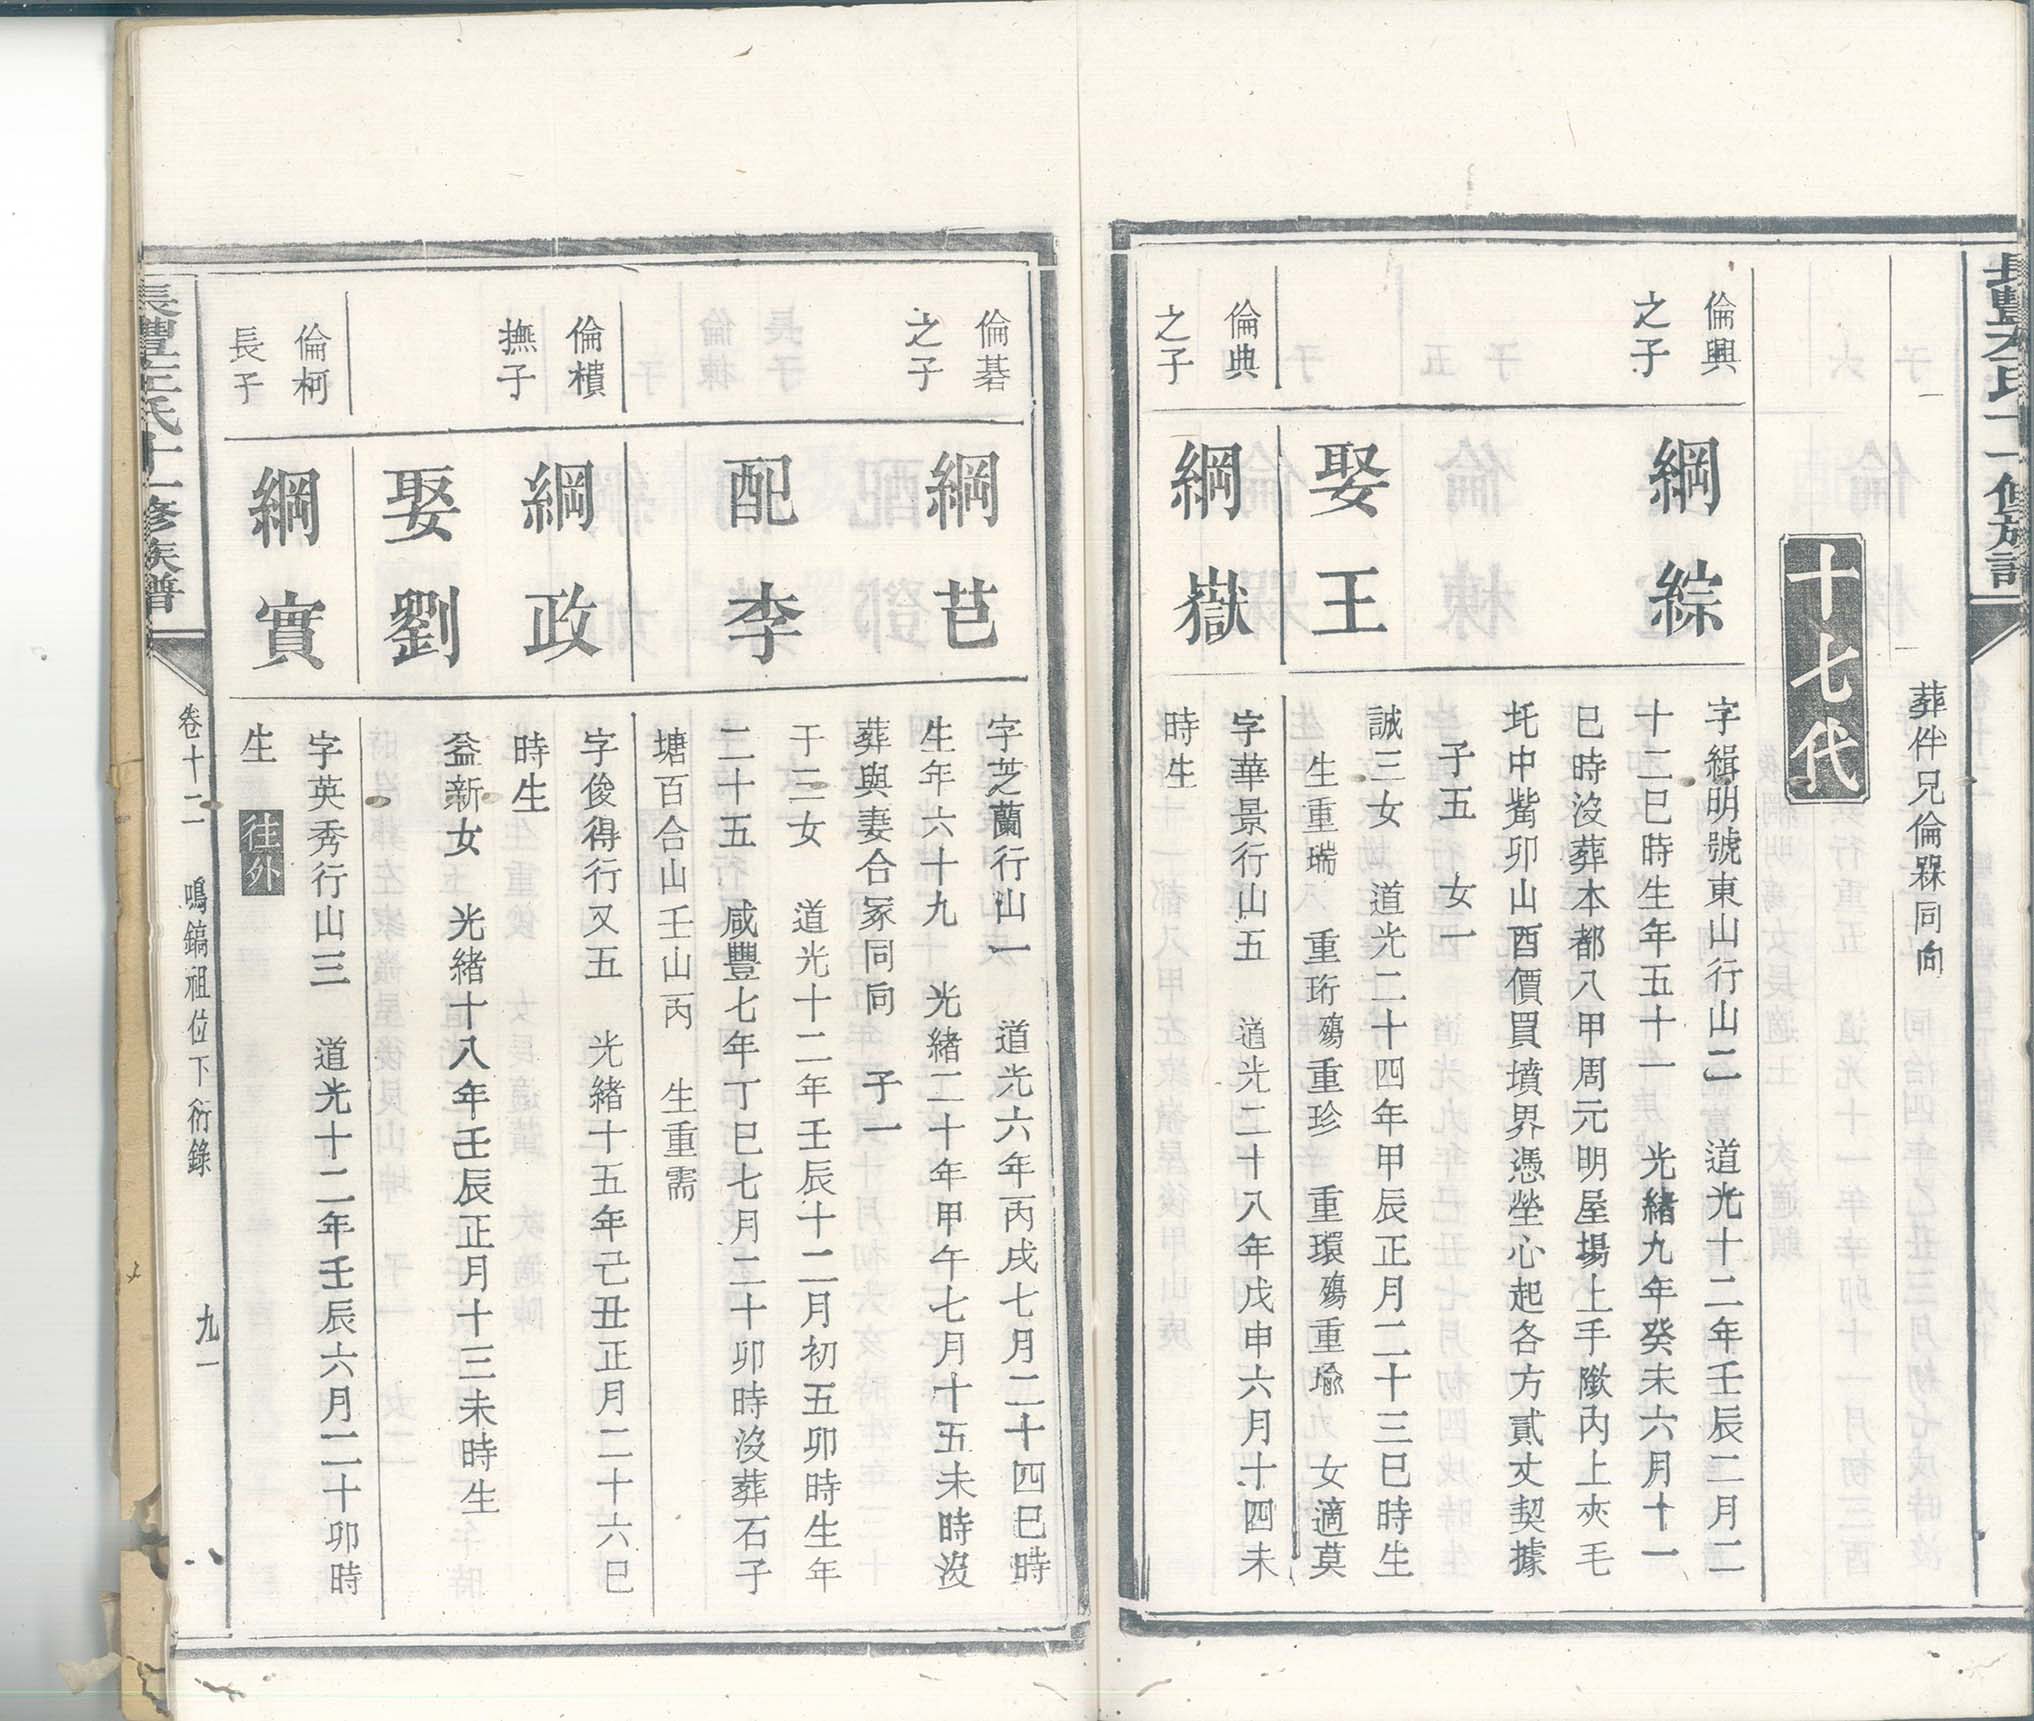 葬伴兄倫槑同向
十七代
倫興
之子
綱綜
字緝明號東山行山二　道光十二年壬辰二月二
十二巳時生年五十一　光緒九年癸未六月十一
巳時沒葬本都八甲周元明屋場上手隞內上夾毛
圫中觜卯山酉價買墳界憑塋心起各方貳丈契據
子五　女一
娶王
誠三女　道光二十四年甲辰正月二十三巳時生
生重瑞　重珩殤重珍　重環殤重瑜　女適莫
倫典
之子
綱嶽
字華景行山五　道光二十八年戊申六月十四未
時生
倫碁
之子
綱芑
字芝蘭行山一　道光六年丙戌七月二十四巳時
生年六十九　光緒二十年甲午七月十五未時沒
葬與妻合冢同向　子一
配李
于三女　道光十二年壬辰十二月初五卯時生年
二十五　咸豐七年丁巳七月二十卯時沒葬石子
塘百合山壬山丙　生重需
倫樻
撫子
綱政
字俊得行又五　光緒十五年己丑正月二十六巳
時生
娶劉
益新女　光緒十八年壬辰正月十三未時生
倫柯
長子
綱實
字英秀行山三　道光十二年壬辰六月二十卯時
生　往外
長豐王氏十一修族譜
卷十二　鳴鎬祖位下衍錄
九一